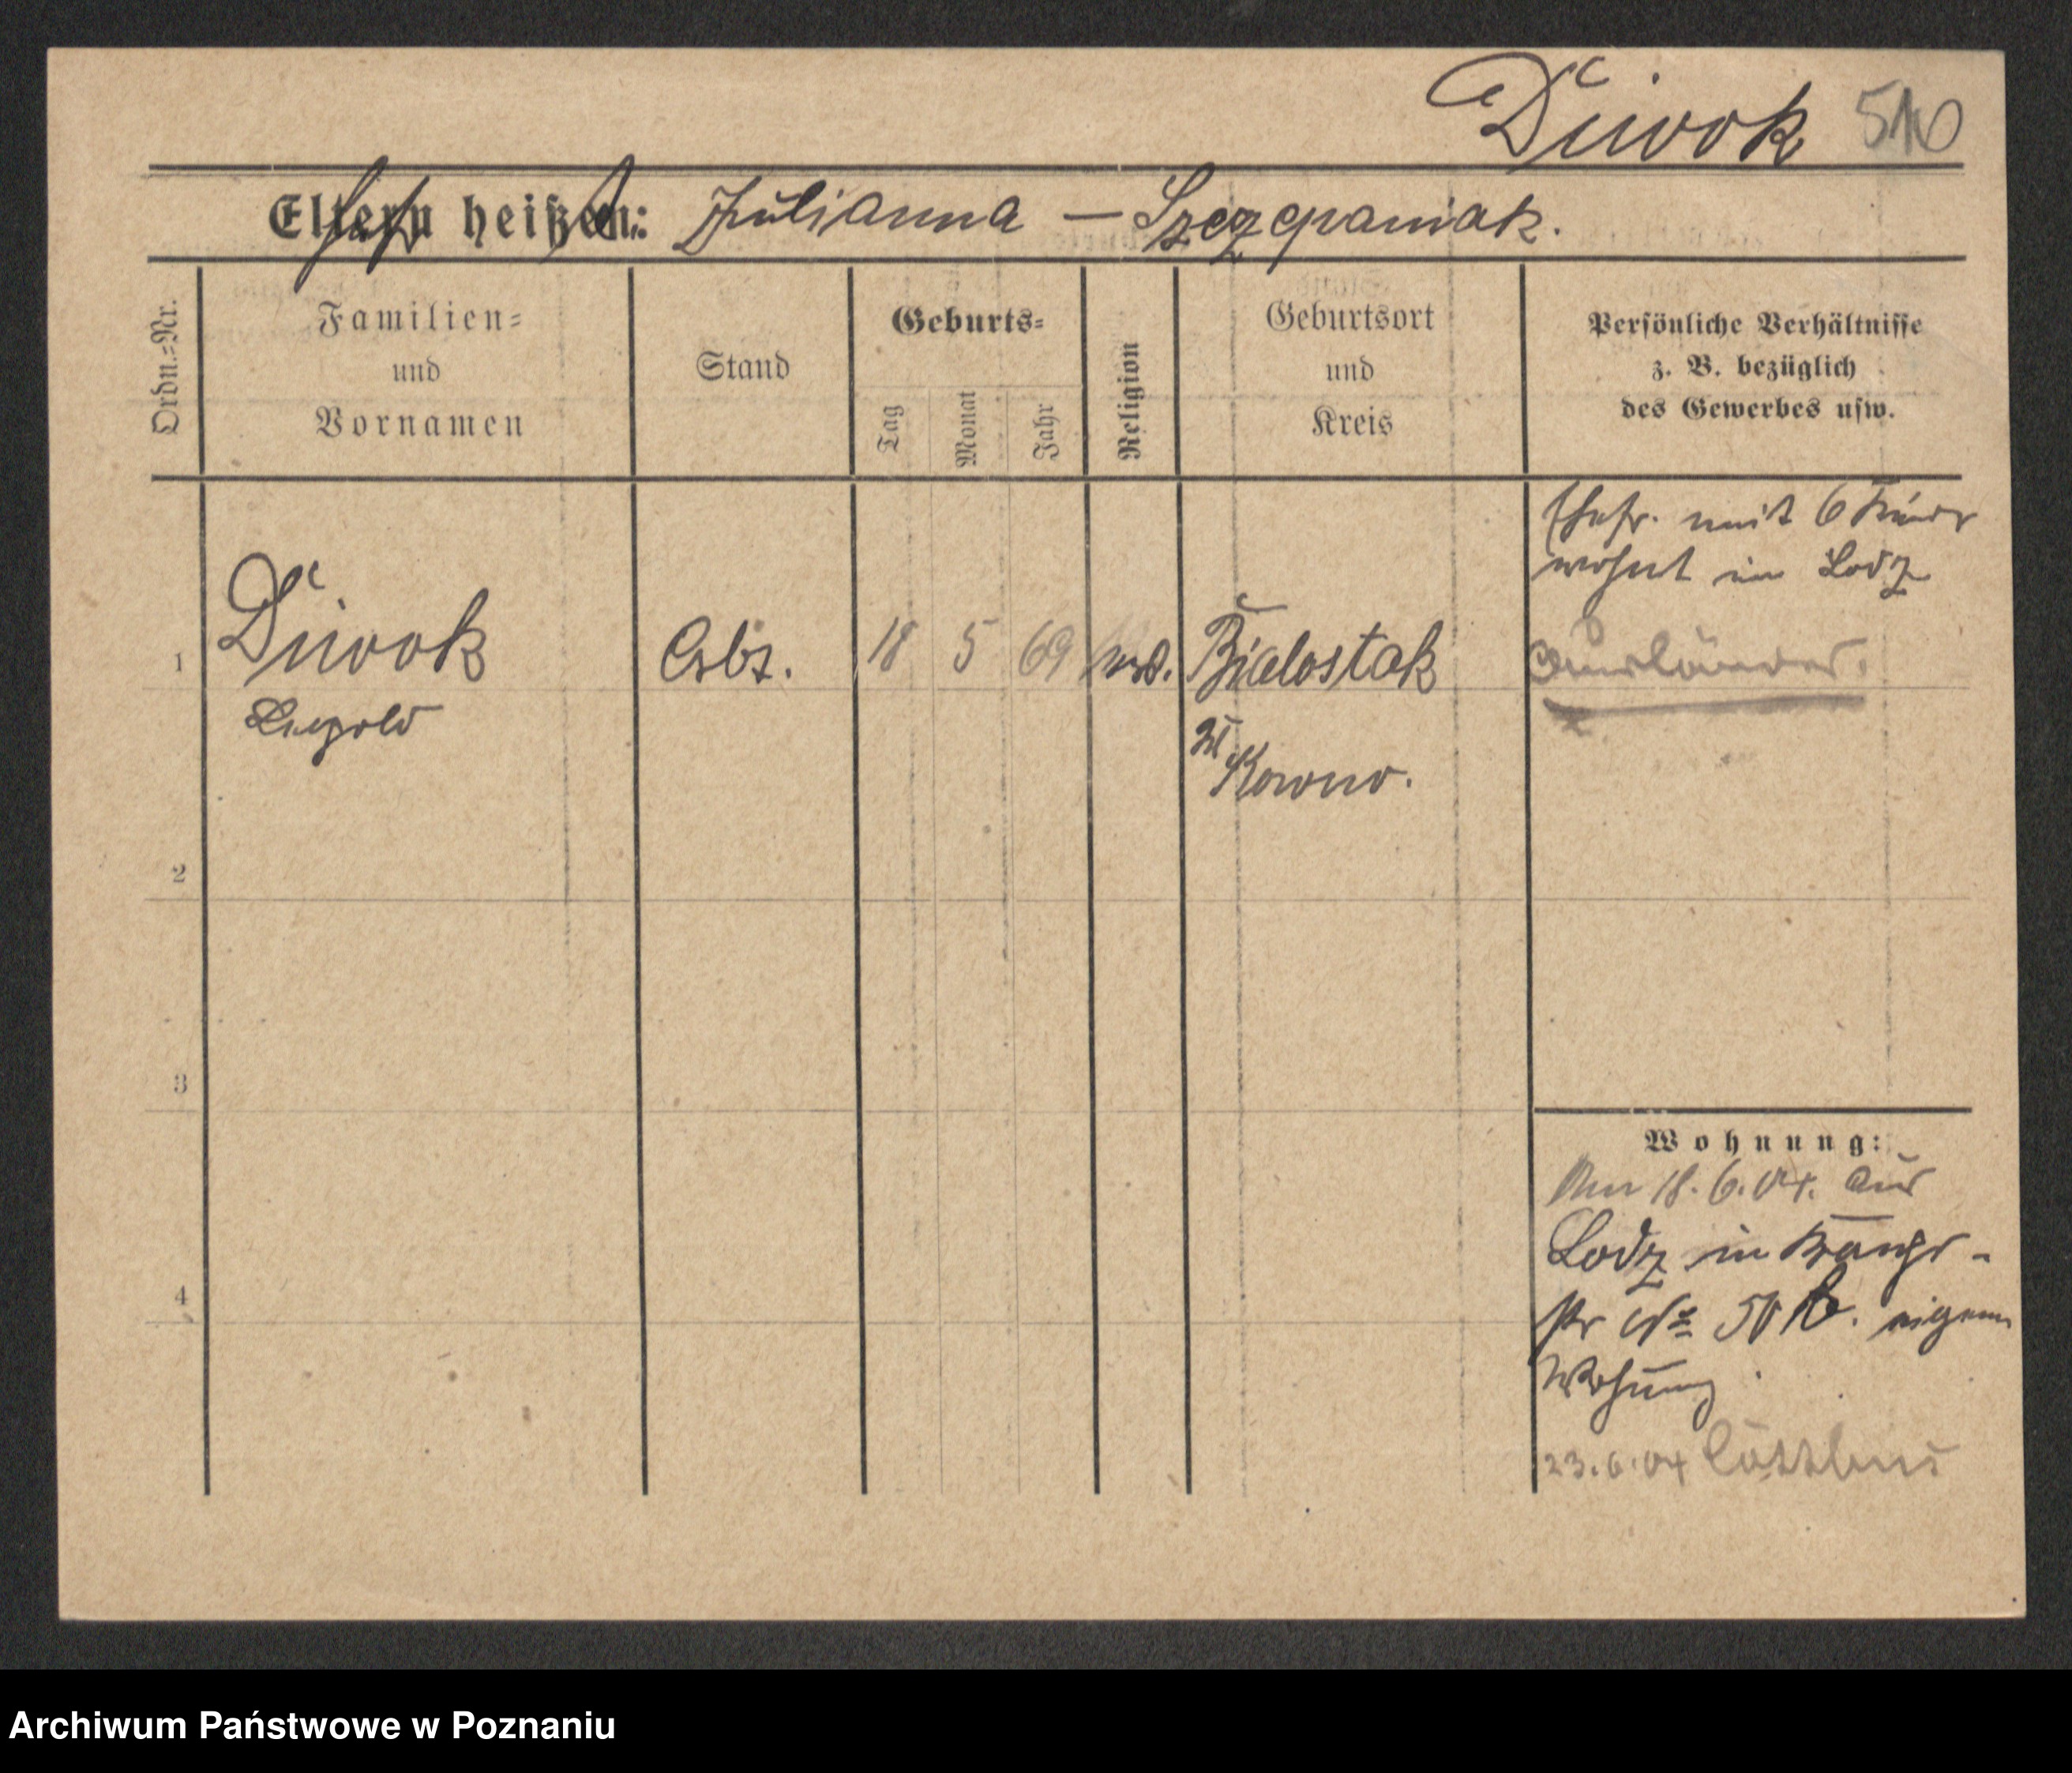 Düvok 510
Eltern heißen: Julianna – Szczepaniak.
Ordn.=Nr.
Familien=
und
Vornamen
Stand
Geburts=
Tag
Monat
Jahr
Religion
Geburtsort
und
Kreis
Persönliche Verhältnisse
z. B. bezüglich
des Gewerbes usw.
Ehefr. mit 6 Kinder
wohnt in Lodz
1
Düvok
Arbt.
18 5 69
Bialostok
Ausländer.
Leopold
Kowno.
2
3
4
Wohnung:
Am 18.6.04. aus
Lodz in
No 50 b. eigene
Wohnung
23.6.04 Cottbus
Archiwum Państwowe w Poznaniu